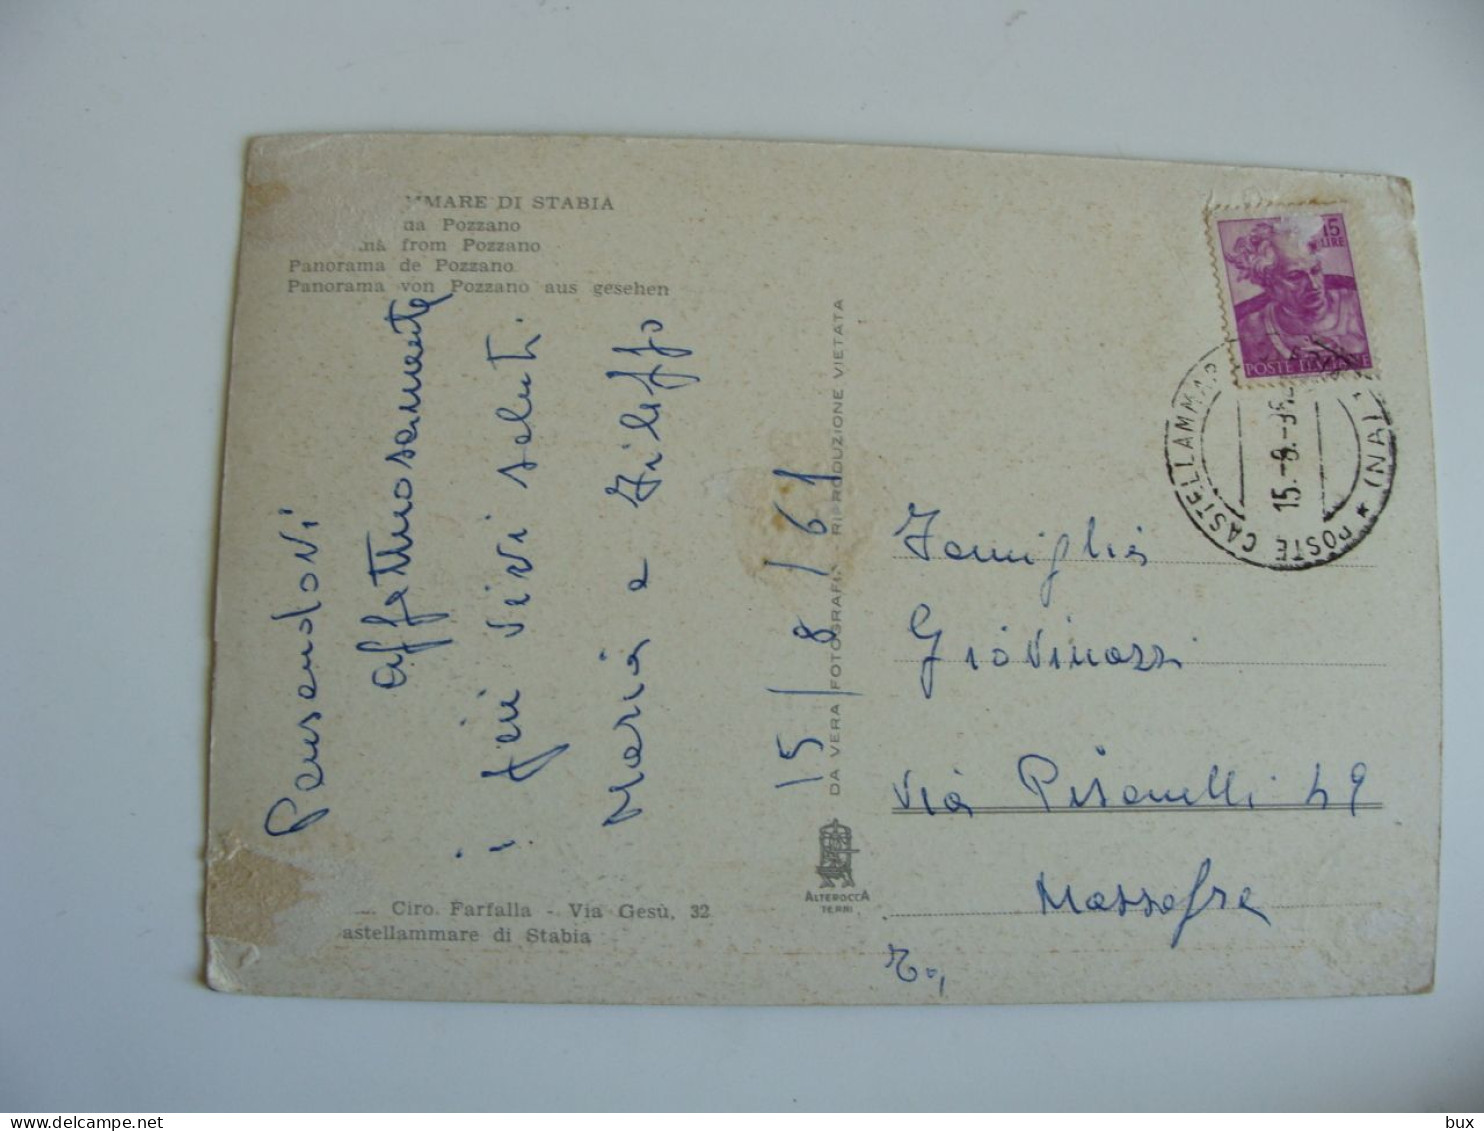 MMARE DI STABIA
na Pozzano
ma from Pozzano
Panorama de Pozzano
Panorama von Pozzano aus gesehen
Pensandovi
affettuosamente
i più vivi saluti.
Maria e
15/8/61
DA VERA FOTOGRAFIA RIPRODUZIONE VIETATA
ALTEROCCA
TERNI
Ciro. Farfalla - Via Gesù, 32
astellammare di Stabia
15
LIRE
POSTE ITALIANE
POSTE CASTELLAMMARE (NA) *
15.-8.-
Famiglia
Giovinazzi
Via Pisanelli 49
Massafra